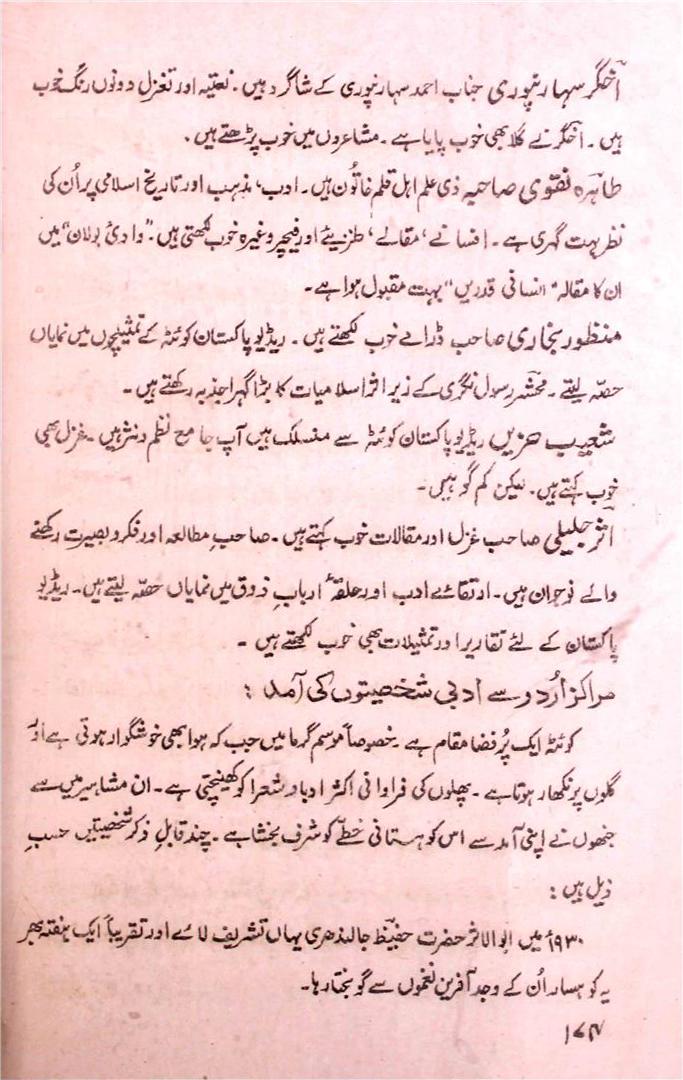 آخگر سہارنپوری جناب احمد سہارنپوری کے شاگرد ہیں۔ نعتیہ اور تغزل دونوں رنگ خوب
ہیں۔ آخگر نے گلا بھی خوب پایا ہے۔ مشاعروں میں خوب پڑھتے ہیں۔
طاہرہ نقوی صاحبہ ذی علم اہل قلم خاتون ہیں۔ ادب، مذہب اور تاریخ اسلامی پر اُن کی
نظر بہت گہری ہے۔ افسانے، مقالے، طنزیئے اور فیچر وغیرہ خوب لکھتی ہیں۔ "وادیٔ بولان" میں
ان کا مقالہ "انسانی قدریں" بہت مقبول ہوا ہے۔
منظور بخاری صاحب ڈرامے خوب لکھتے ہیں۔ ریڈیو پاکستان کوئٹہ کے تمثیلچوں میں نمایاں
حصّہ لیتے۔ محشر رسول نگری کے زیر اثر اسلامیات کا بڑا گہرا جذبہ رکھتے ہیں۔
شعیب حزیں ریڈیو پاکستان کوئٹہ سے منسلک ہیں آپ جامع نظم و نثر ہیں۔ غزل بھی
خوب کہتے ہیں۔ لیکن کم گو ہیں۔
اثر جلیلی صاحب غزل اور مقالات خوب کہتے ہیں۔ صاحبِ مطالعہ اور فکر و بصیرت رکھنے
والے نوجوان ہیں۔ ارتقائے ادب اور حلقۂ اربابِ ذوق میں نمایاں حصّہ لیتے ہیں۔ ریڈیو
پاکستان کے لئے تقاریر اور تمثیلات بھی خوب لکھتے ہیں۔
مراکز اُردو سے ادبی شخصیتوں کی آمد:
کوئٹہ ایک پُر فضا مقام ہے۔ خصوصاً موسم گرما میں جب کہ ہوا بھی خوشگوار ہوتی ہے اور
گلوں پر نکھار ہوتا ہے۔ پھلوں کی فراوانی اکثر ادبا و شعرا کو کھینچتی ہے۔ ان مشاہیر میں سے
جنھوں نے اپنی آمد سے اس کوہستانی خطّے کو شرف بخشا ہے۔ چند قابلِ ذکر شخصیتیں حسبِ
ذیل ہیں:
۱۹۳۰ء میں ابو الاثر حضرت حفیظ جالندھری یہاں تشریف لائے اور تقریباً ایک ہفتہ بھر
یہ کوہسار اُن کے وجد آفرین نغموں سے گونجتا رہا۔
۱۷۴